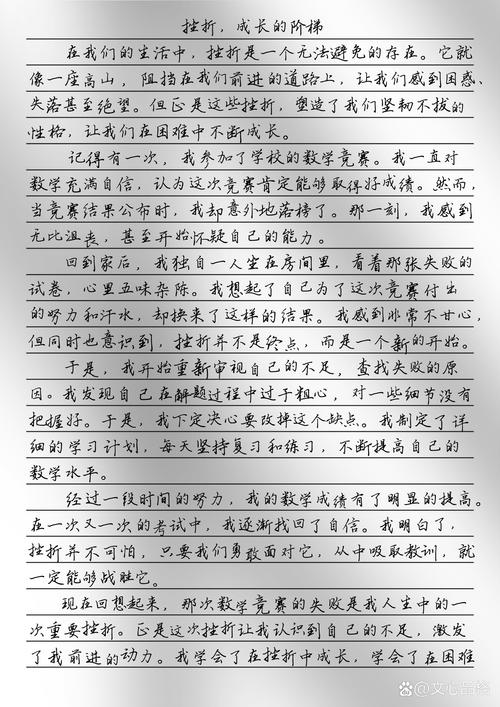 挫折，成长的阶梯
在我们的生活中，挫折是一个无法避免的存在。它就
像一座高山，阻挡在我们前进的道路上，让我们感到困惑、
失落甚至绝望。但正是这些挫折，塑造了我们坚韧不拔的
性格，让我们在困难中不断成长。
记得有一次，我参加了学校的数学竞赛。我一直对
数学充满自信，认为这次竞赛肯定能够取得好成绩。然而，
当竞赛结果公布时，我却意外地落榜了。那一刻，我感到
无比沮丧，甚至开始怀疑自己的能力。
回到家后，我独自一人坐在房间里，看着那张失败的
试卷，心里五味杂陈。我想起了自己为了这次竞赛付出
的努力和汗水，却换来了这样的结果。我感到非常不甘心，
但同时也意识到，挫折并不是终点，而是一个新的开始。
于是，我开始重新审视自己的不足，查找失败的原
因。我发现自己在解题过程中过于粗心，对一些细节没有
把握好。于是，我下定决心要改掉这个缺点。我制定了详
细的学习计划，每天坚持复习和练习，不断提高自己的
数学水平。
经过一段时间的努力，我的数学成绩有了明显的提高。
在一次又一次的考试中，我逐渐找回了自信。我明白了，
挫折并不可怕，只要我们勇敢面对它，从中吸取教训，就
一定能够战胜它。
现在回想起来，那次数学竞赛的失败是我人生中的一
次重要挫折。正是这次挫折让我认识到自己的不足，激发
了我前进的动力。我学会了在挫折中成长，学会了在困难